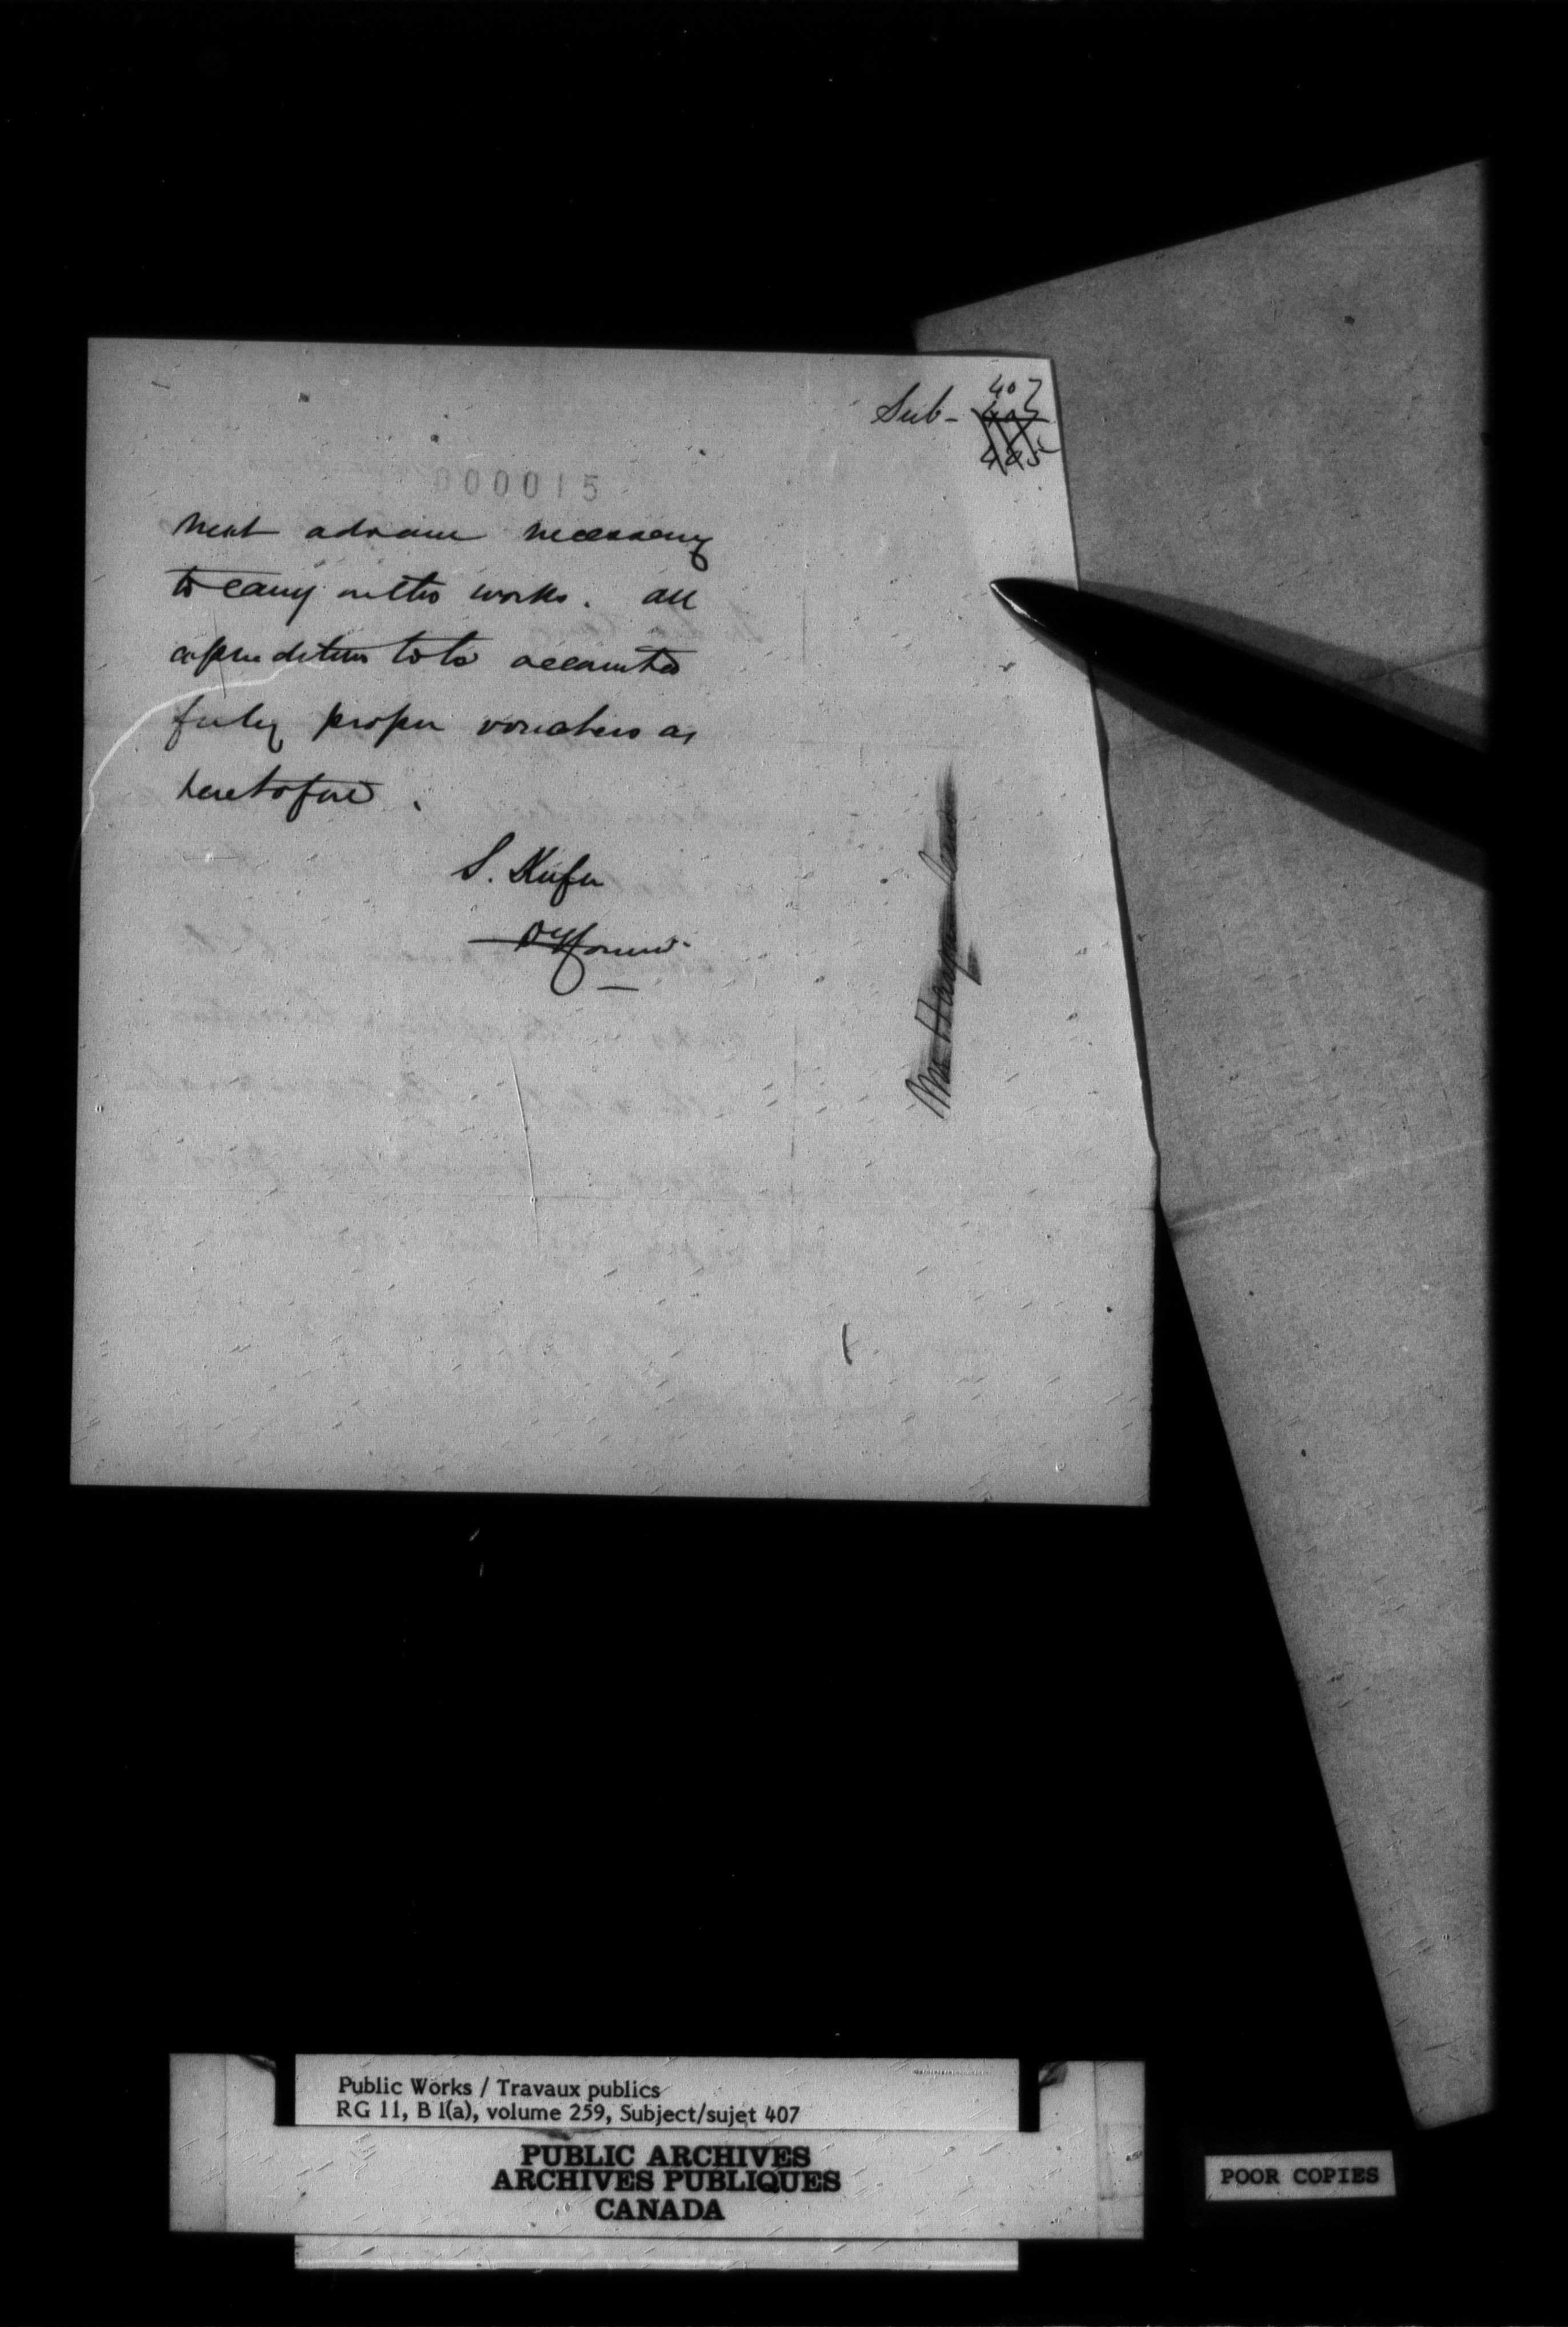 Sub- 407
000015
next advance necessary
to carry on the works. All
expenditure to be accounted
for by proper vouchers as
heretofore.
S. Keefer
Dy Commr
Public Works / Travaux publics
RG 11, B 1(a), volume 259, Subject/sujet 407
PUBLIC ARCHIVES
ARCHIVES PUBLIQUES
CANADA
POOR COPIES